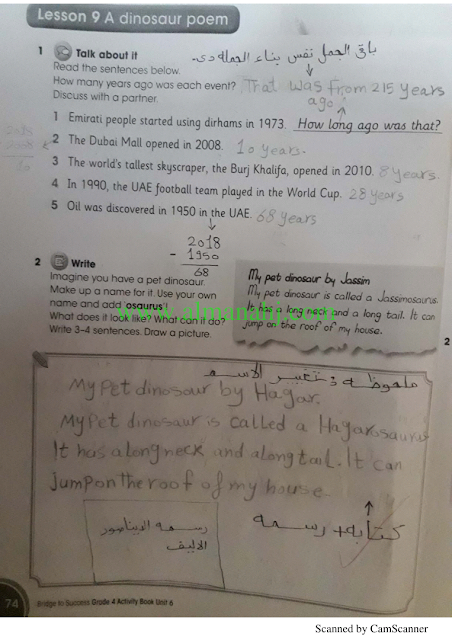 Lesson 9 A dinosaur poem
1 Talk about it
باقي الجمل نفس بناء الجملة دي.
Read the sentences below.
How many years ago was each event? That was from 215 years
ago
Discuss with a partner.
1 Emirati people started using dirhams in 1973. How long ago was that?
2 The Dubai Mall opened in 2008. 10 years.
3 The world's tallest skyscraper, the Burj Khalifa, opened in 2010. 8 years.
4 In 1990, the UAE football team played in the World Cup. 28 years
5 Oil was discovered in 1950 in the UAE. 68 years
2018
- 1950
68
2 Write
Imagine you have a pet dinosaur.
Make up a name for it. Use your own
name and add 'osaurus'!
What does it look like? What can it do?
Write 3–4 sentences. Draw a picture.
My pet dinosaur by Jassim
My pet dinosaur is called a Jassimosaurus.
It has a long neck and a long tail. It can
jump on the roof of my house.
www.almanahj.com
2
ملحوظة : تغيير الاسم
My Pet dinosaur by Hagar.
My Pet dinosaur is called a Hagarosaurus
It has a long neck and a long tail. It can
Jump on the roof of my house.
كتابة + رسمه
رسمه الديناصور
الاليف
74 Bridge to Success Grade 4 Activity Book Unit 6
Scanned by CamScanner